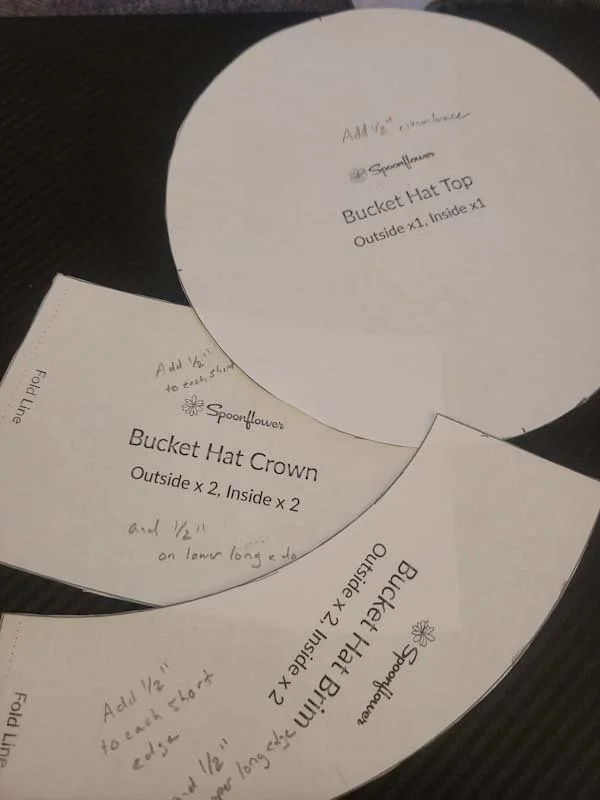 Add 1/2" circumference
Spoonflower
Bucket Hat Top
Outside x1, Inside x1
Fold Line
Add 1/2"
to each short
Spoonflower
Bucket Hat Crown
Outside x 2, Inside x 2
and 1/2"
on lower long
Spoonflower
Bucket Hat Brim
Outside x 2, Inside x 2
Fold Line
Add 1/2"
to each short
edge
1/2"
long edge